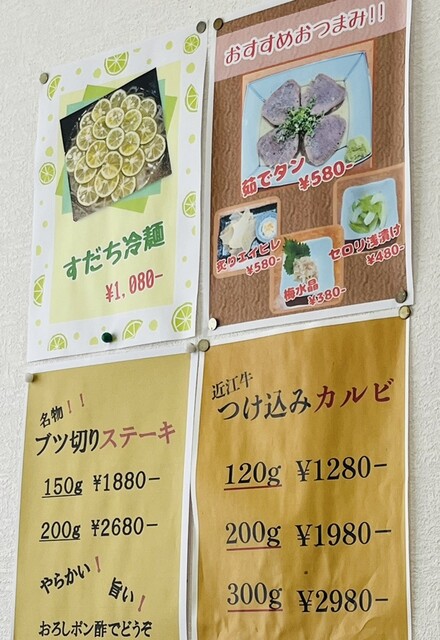 すだち冷麺
¥1,080-
おすすめおつまみ!!
茹でタン
¥580-
炙りエイヒレ
¥580-
梅水晶
¥380-
セロリ浅漬け
¥480-
名物!!
ブツ切りステーキ
150g ¥1880-
200g ¥2680-
やらかい!
旨い!
おろしポン酢でどうぞ
近江牛
つけ込みカルビ
120g ¥1280-
200g ¥1980-
300g ¥2980-